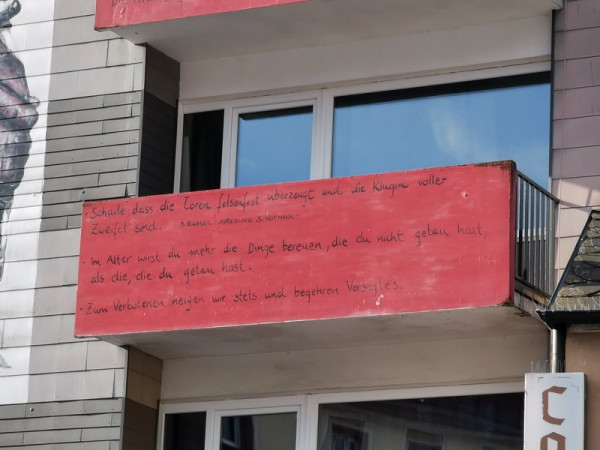 - Schade dass die Toren felsenfest überzeugt und die Klugen voller
Zweifel sind.
- Im Alter wirst du mehr die Dinge bereuen, die du nicht getan hast,
als die, die du getan hast.
- Zum Verbotenen neigen wir stets und begehren Versagtes.
C